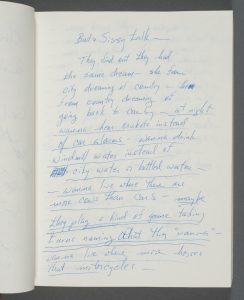 Bud & Sissy talk —
They find out they had
the same dream — she from
city dreaming of country — he
from country dreaming of
going back to country — at night
wanna hear crickets instead
of car alarms — wanna drink
windmill water instead of
city water or bottled water —
— wanna live where there are
more cows than cars — maybe
they play a kind of game taking
turns naming what they "wanna" —
wanna live where more horses
than motorcycles —